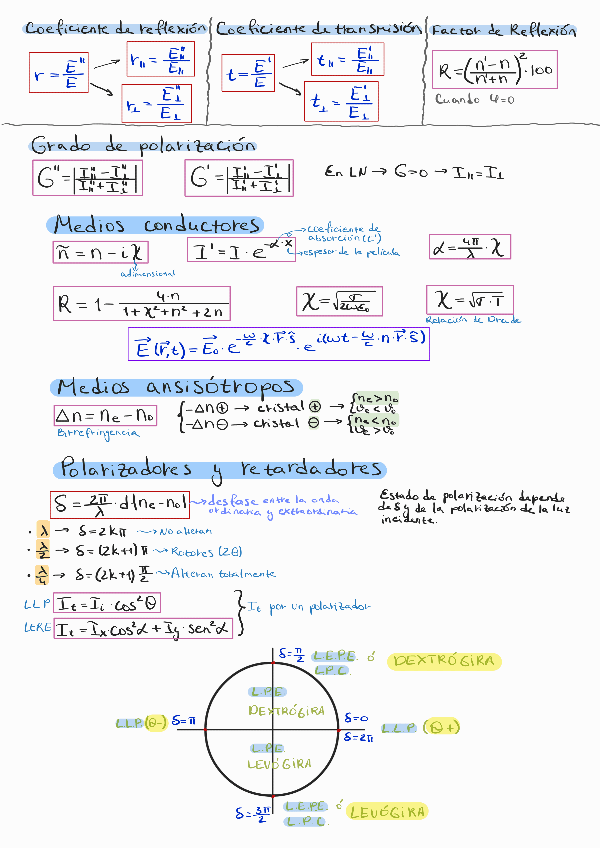 Coeficiente de reflexión
r = E''/E
r₁₁ = E₁₁''/E₁₁
r⊥ = E⊥''/E⊥
Coeficiente de transmisión
t = E'/E
t₁₁ = E₁₁'/E₁₁
t⊥ = E⊥'/E⊥
Factor de Reflexión
R = ((n'-n)/(n'+n))² · 100
Cuando φ=0
Grado de polarización
G'' = |(I₁₁'' - I⊥'')/(I₁₁'' + I⊥'')|
G' = |(I₁₁' - I⊥')/(I₁₁' + I⊥')|
En LN → G=0 → I₁₁=I⊥
Medios conductores
ñ = n - iχ
adimensional
I' = I · e^(-α·x)
→ coeficiente de
absorción (L⁻¹)
→ espesor de la película
α = 4π/λ · χ
R = 1 - 4·n/(1+χ²+n²+2n)
χ = √(σ/(2ωε₀))
χ = √(σ·T)
Relación de Drude
E(r,t) = E₀ · e^(-ω/c χ·r·ŝ) · e^(i(ωt - ω/c·n·r·ŝ))
Medios ansisótropos
Δn = ne - no
Birrefringencia
-Δn⊕ → cristal ⊕ → {ne>no
ve<vo
-Δn⊖ → cristal ⊖ → {ne<no
ve>vo
Polarizadores y retardadores
δ = 2π/λ · d|ne-no|
→ desfase entre la onda
ordinaria y extraordinaria
Estado de polarización depende
de δ y de la polarización de la luz
incidente.
· λ → δ = 2kπ → No alteran
· λ/2 → δ = (2k+1)π → Rotores (2θ)
· λ/4 → δ = (2k+1)π/2 → Alteran totalmente
LLP It = Ii · cos²θ
LERE It = Ix·cos²α + Iy·sen²α
It por un polarizador
δ=π/2 L.E.P.E. ó DEXTRÓGIRA
L.P.C.
L.P.E
DEXTRÓGIRA
LLP (θ-) δ=π
δ=0
δ=2π
LLP (θ+)
L.P.E.
LEVÓGIRA
δ=3π/2
L.E.P.E. ó LEVÓGIRA
L.P.C.